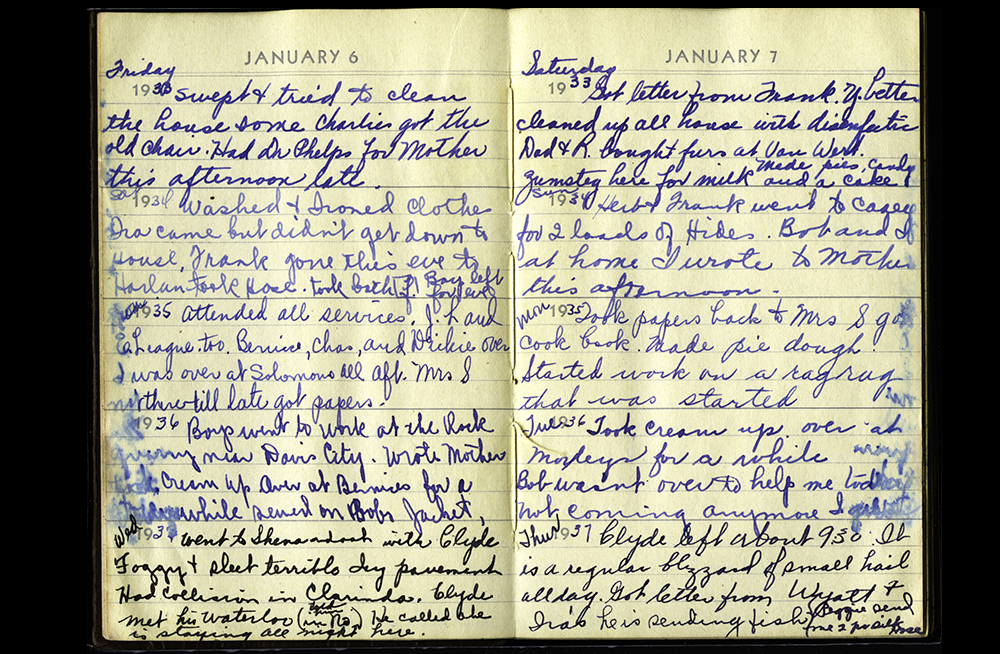 JANUARY 6
Friday
1933 swept & tried to clean
the house some Charlies got the
old chair. Had Dr Phelps for Mother
this afternoon late.
Sat 1934 Washed & Ironed clothes
Ira came but didn't get down to
house, Frank gone this eve to
Harlan took Hose. took bath Boys left
for eve
1935 attended all services. J. L and
E. League too. Bernice, Chas, and Dickie over
I was over at Solomons all aft. Mrs S
not thru till late got papers.
1936 Boys went to work at the Rock
quarry near Davis City. Wrote Mother
Cream up over at Bernices for a
while sewed on Bobs Jacket,
Wed 1937 went to Shenandoah with Clyde
Foggy & sleet terrible Icy pavement
Had collision in Clarinda. Clyde
met his Waterloo (in Mo.) He called he
is staying all night here.
JANUARY 7
Saturday
1933 Got letter from Frank. better
cleaned up all house with disenfectic
Dad & R. bought furs at Van Wert.
Made pies, candy
Zumsteg here for milk and a cake
Sun 1934 Herb & Frank went to Casey
for 2 loads of Hides. Bob and I
at home I wrote to Mother
this afternoon.
Mon 1935 Took papers back to Mrs S got
Cook book. Made pie dough.
Started work on a rag rug
that was started
Tue 1936 Took cream up. over at
Mosleys for a while
Bob wasnt over to help me
not coming anymore I
Thur 1937 Clyde left about 930. It
is a regular blizzard of small hail
all day. Got letter from Wyatt &
Ira's he is sending fish (Peggie send
me 2 pr silk hose